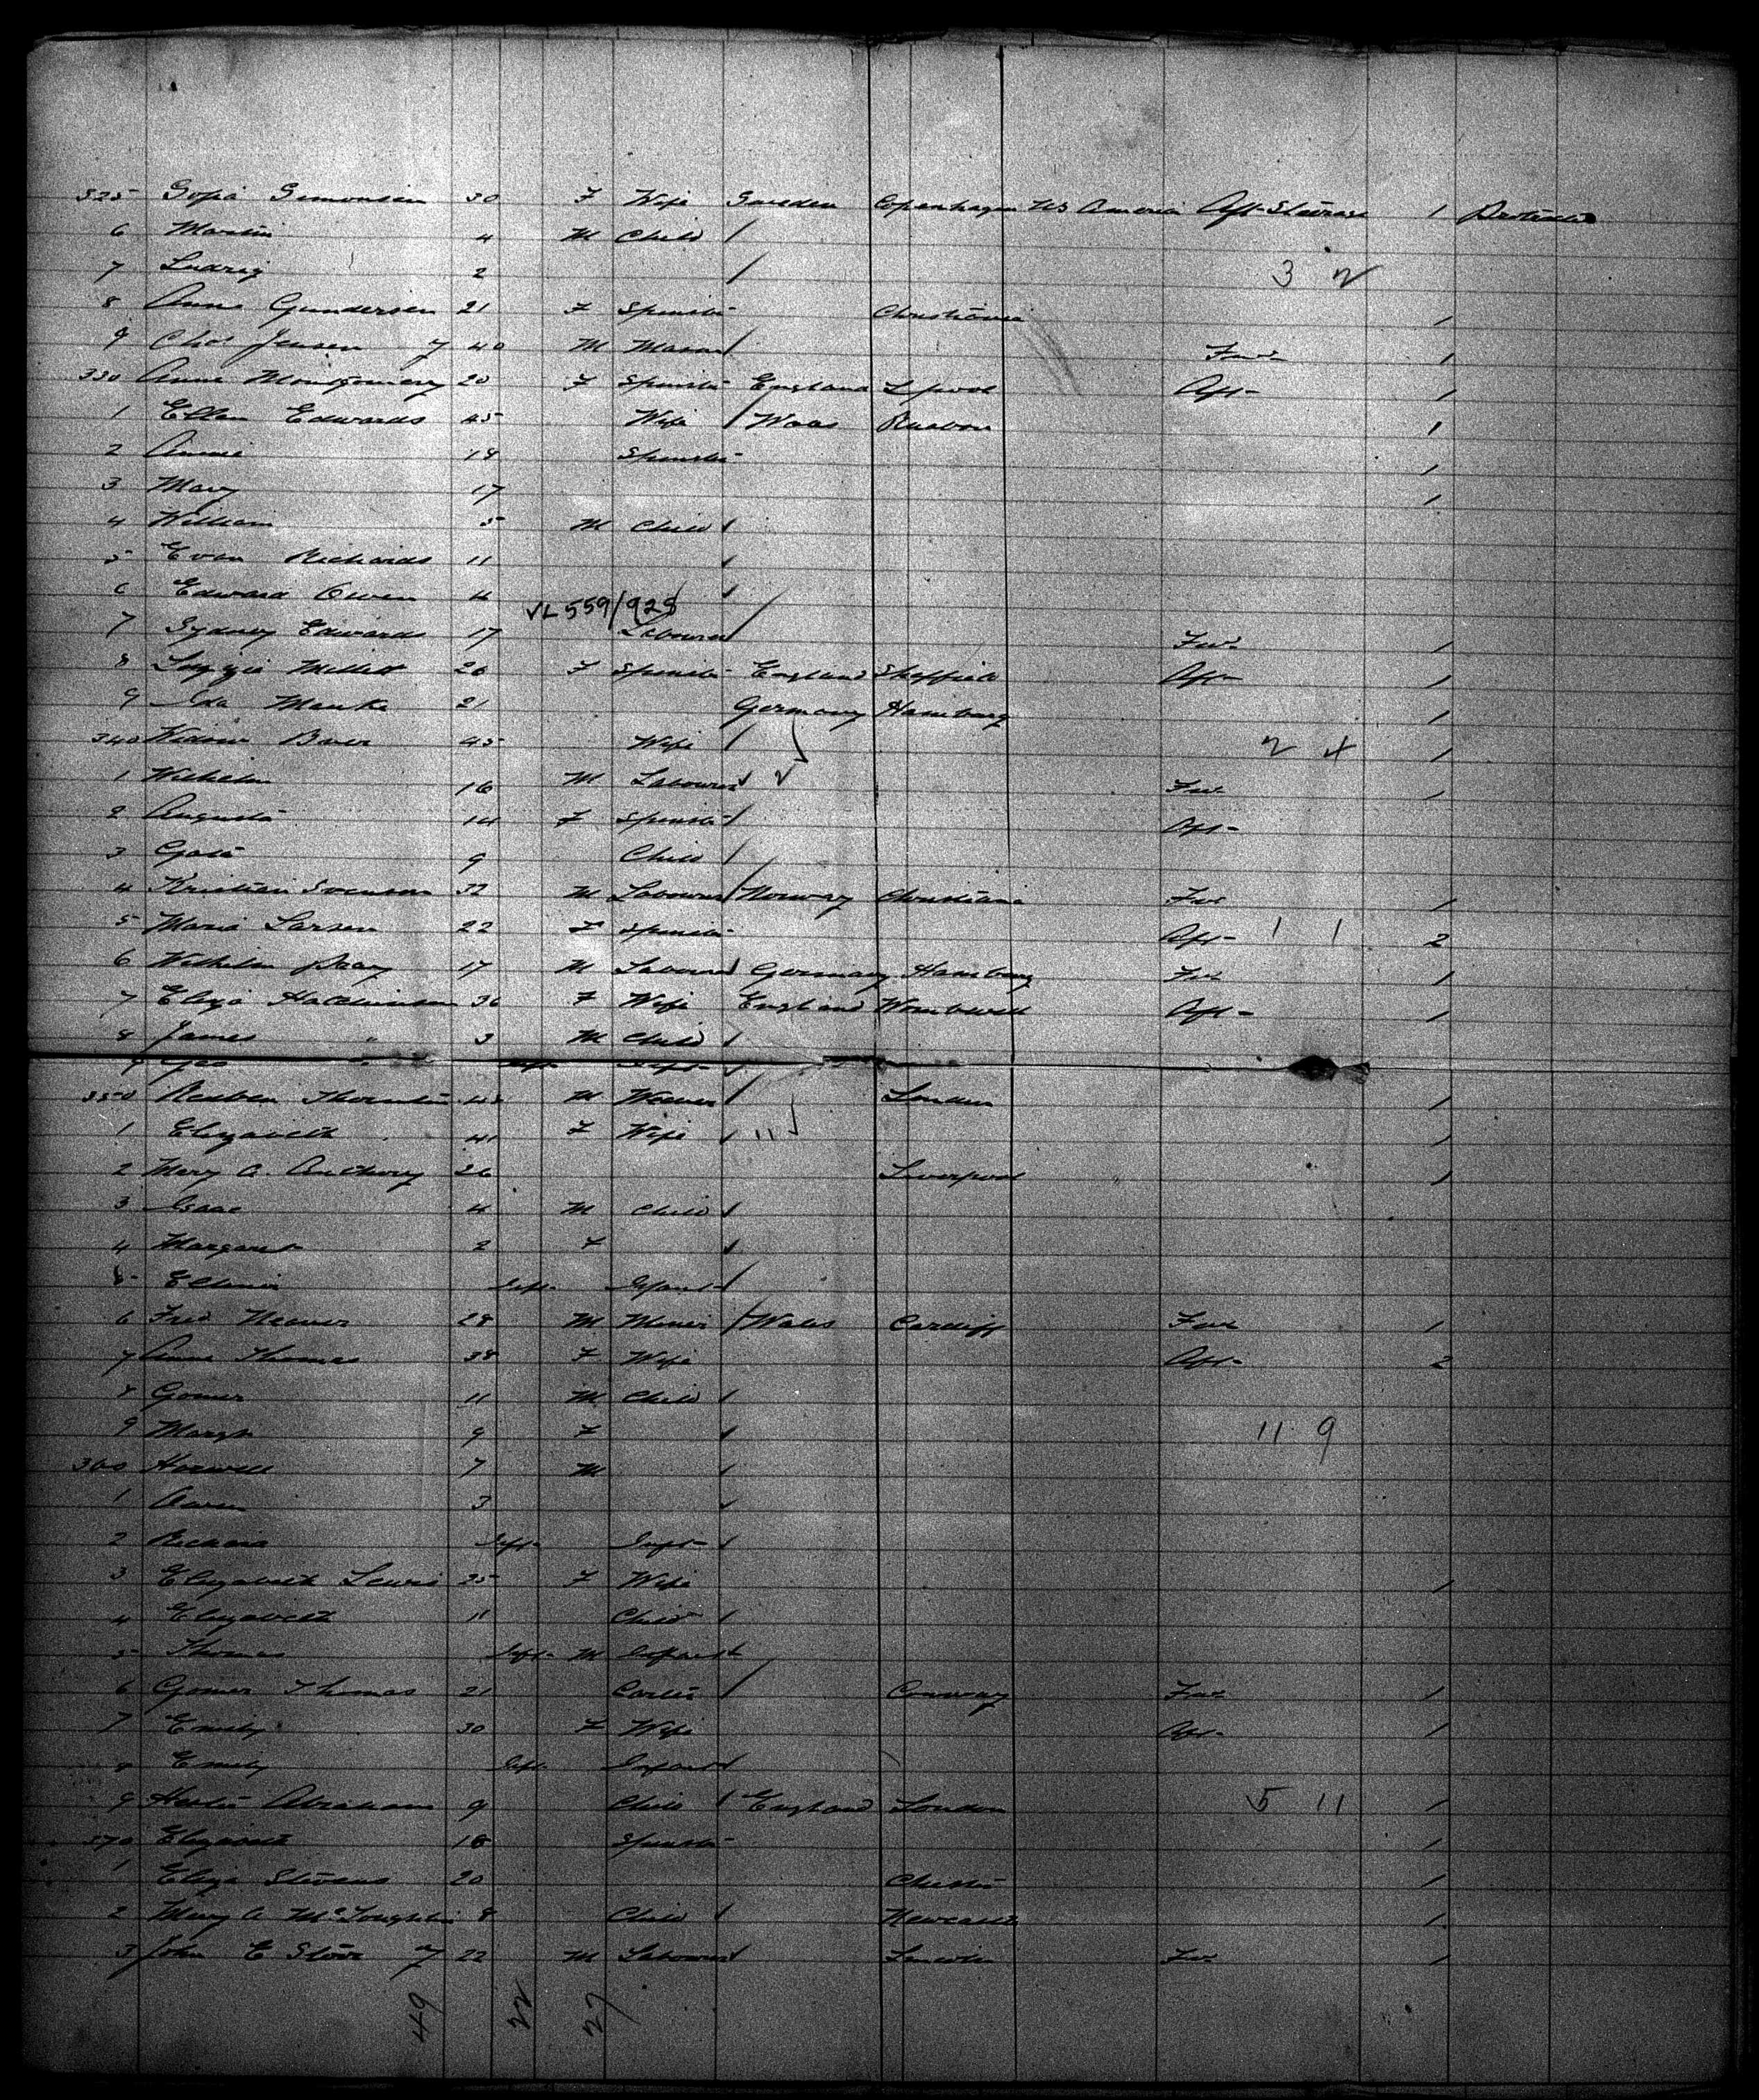 325 Sofia Simonsen 30 F Wife Sweden Copenhagen US America Aft Steerage 1
6 Martin 4 M Child /
7 Ludvig 2 / 3 2
8 Anna Gundersen 21 F Spinster Christiania 1
9 Chas Jensen 40 M Mason / Fwd 1
330 Anne Montgomery 20 F Spinster England Lpool Aft 1
1 Ellen Edwards 45 Wife / Wales Ruabon 1
2 Annie 18 Spinster 1
3 Mary 17 1
4 William 5 M Child /
5 Evan Richards 11 /
6 Edward Owen 4 /
VL 559/928
7 Sydney Edwards 17 Labourer / Fwd 1
8 Millett 20 F Spinster England Sheffield Aft 1
9 Ida Manke 21 Germany Hamburg 1
340 Baer 45 Wife / 2 4 1
1 Wilhelm 16 M Labourer / Fwd 1
2 Augusta 14 F Spinster / Aft
3 9 Child /
4 Kristian Svenson 32 M Labourer / Norway Christiana Fwd 1
5 Maria Larsen 22 F Spinster Aft 1 1 2
6 Wilhelm 17 M Labourer Germany Hamburg Fwd 1
7 Eliza Hutchinson 36 F Wife England Wombwell Aft 1
8 James " 3 M Child /
9 Geo " Inft Inft /
350 Reuben Thornton M / London 1
1 Elizabeth 41 F Wife / 11 1
2 Mary A. Anthony 26 Liverpool 1
3 Isaac 4 M Child /
4 Margaret 2 F /
5 Inft Infant /
6 Fred 28 M Miner / Wales Cardiff Fwd 1
7 Anne Thomas 38 F Wife Aft 2
8 Gomer 11 M Child /
9 Margt 9 F / 11 9
360 7 M /
1 3 /
2 Richard Inft Inft /
3 Elizabeth Lewis 25 F Wife 1
4 Elizabeth 11 Child /
5 Thomas Inft M Infant
6 Gomer Thomas 21 / Conway Fwd 1
7 Emily 30 F Wife Aft 1
8 Emily Inft Infant /
9 Abraham 9 Child / England London 5 11 1
370 Elizabeth 18 Spinster 1
1 Eliza Stevens 20 Chester 1
2 Mary A McLoughlin 8 Child / Newcastle 1
3 John E 22 M Labourer / Lincoln Fwd 1
49 22 27